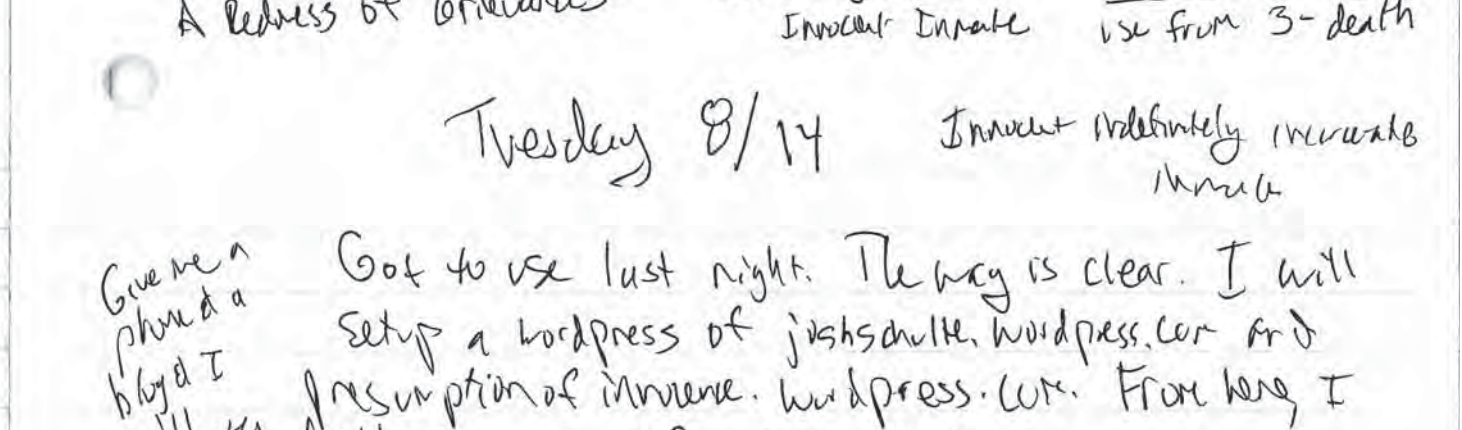 A Redress of Grievances
Innocent Inmate use from 3-death
Tuesday 8/14
Innocent indefinitely incarcerate
inmate
Give me a
phone & a
blog & I
Got to use last night. The way is clear. I will
setup a wordpress of joshschulte.wordpress.com and
presumptionofinnocence.wordpress.com. From here, I